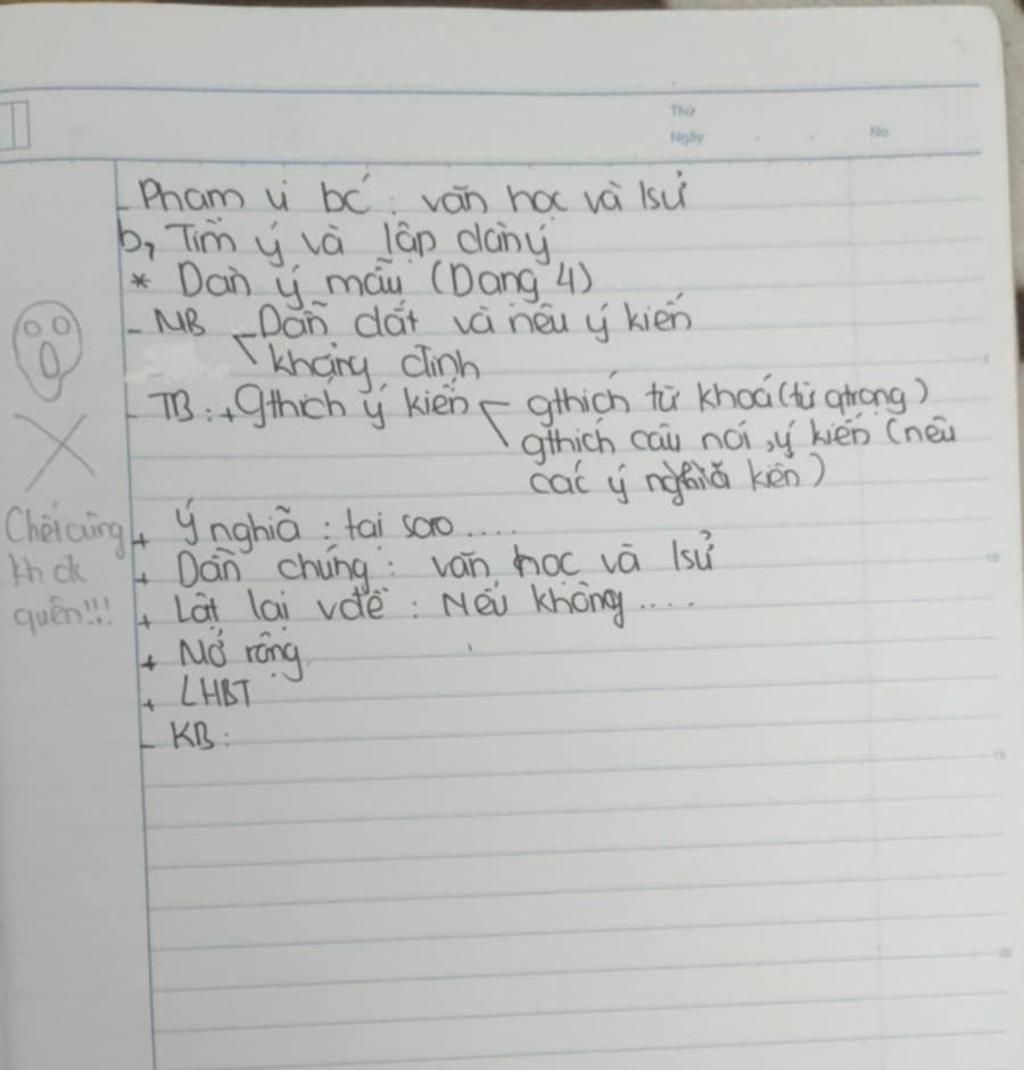 Thứ
Ngày . . No.
- Phạm vi bc' : văn học và lsử
b, Tìm ý và lập dàn ý
* Dàn ý mẫu (Dạng 4)
- MB - Dẫn dắt và nêu ý kiến
khẳng định
- TB : + Gthích ý kiến - gthích từ khoá (từ qtrọng)
gthích câu nói, ý kiến (nêu
các ý nghĩa kiến)
+ Ý nghĩa : tại sao ....
+ Dẫn chứng : văn học và lsử
+ Lật lại vđề : Nếu không ....
+ Mở rộng
+ LHBT
- KB :
Chết cũng
kh đc
quên!!!
5
10
15
20